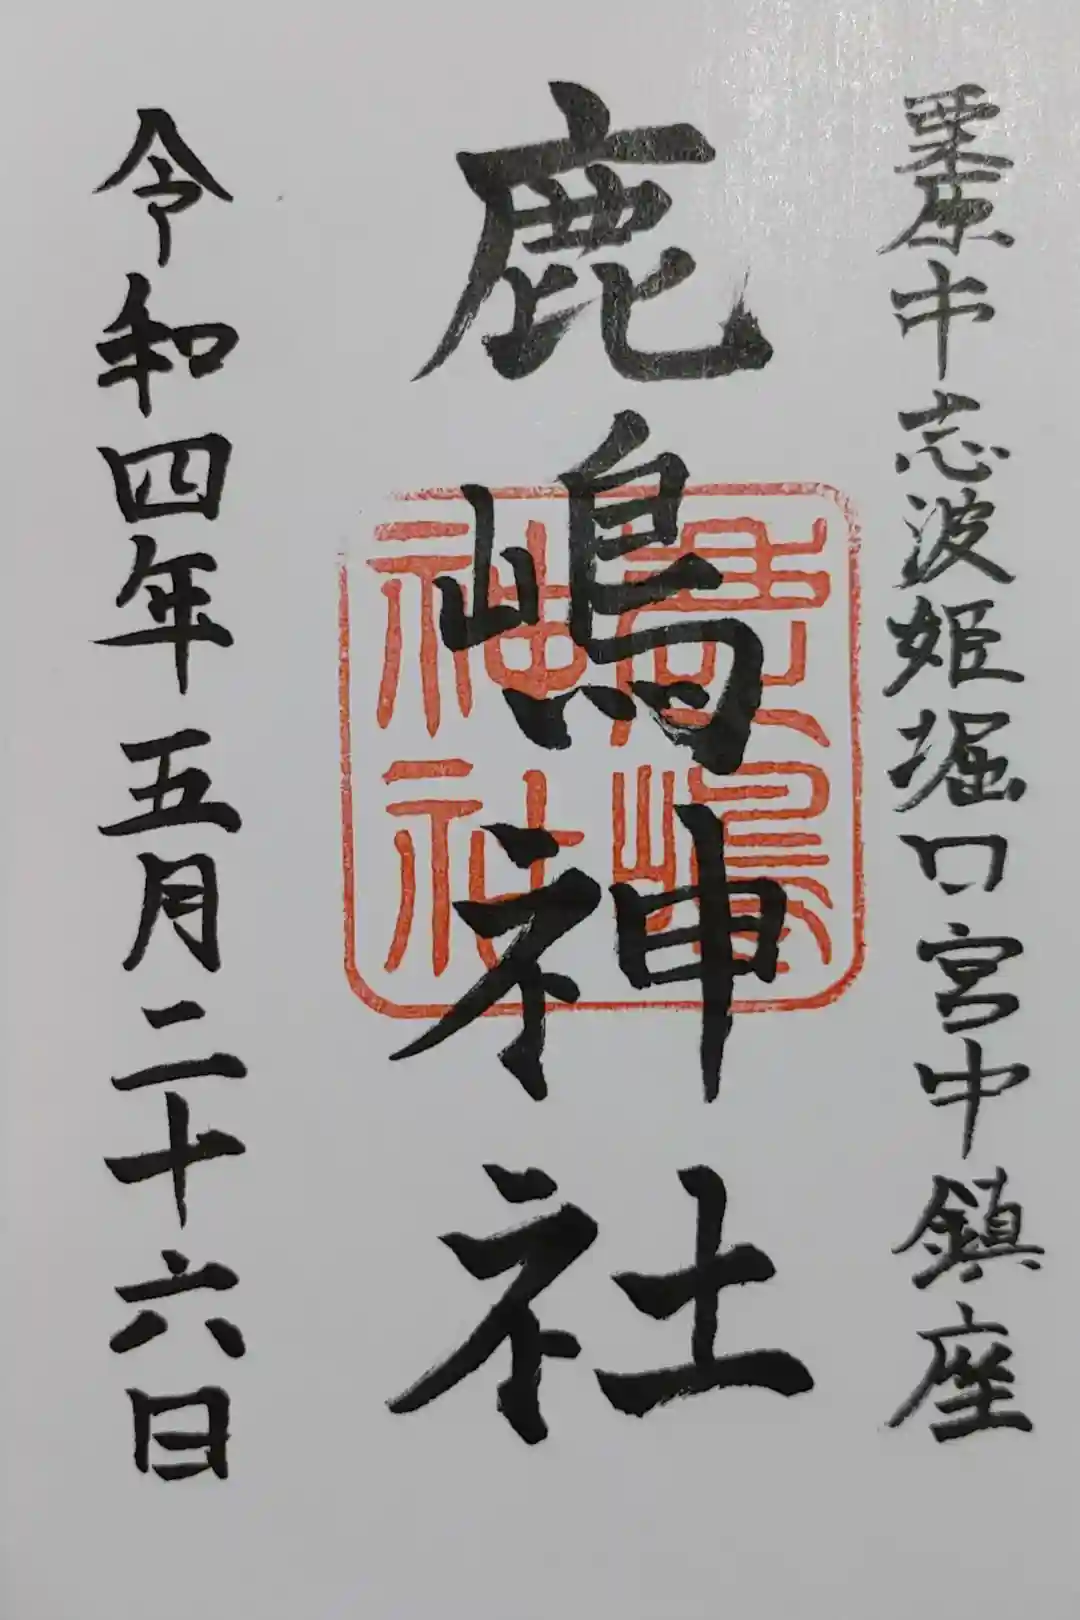 栗原市志波姫堀口宮中鎮座
鹿嶋神社
鹿嶋神社
令和四年五月二十六日